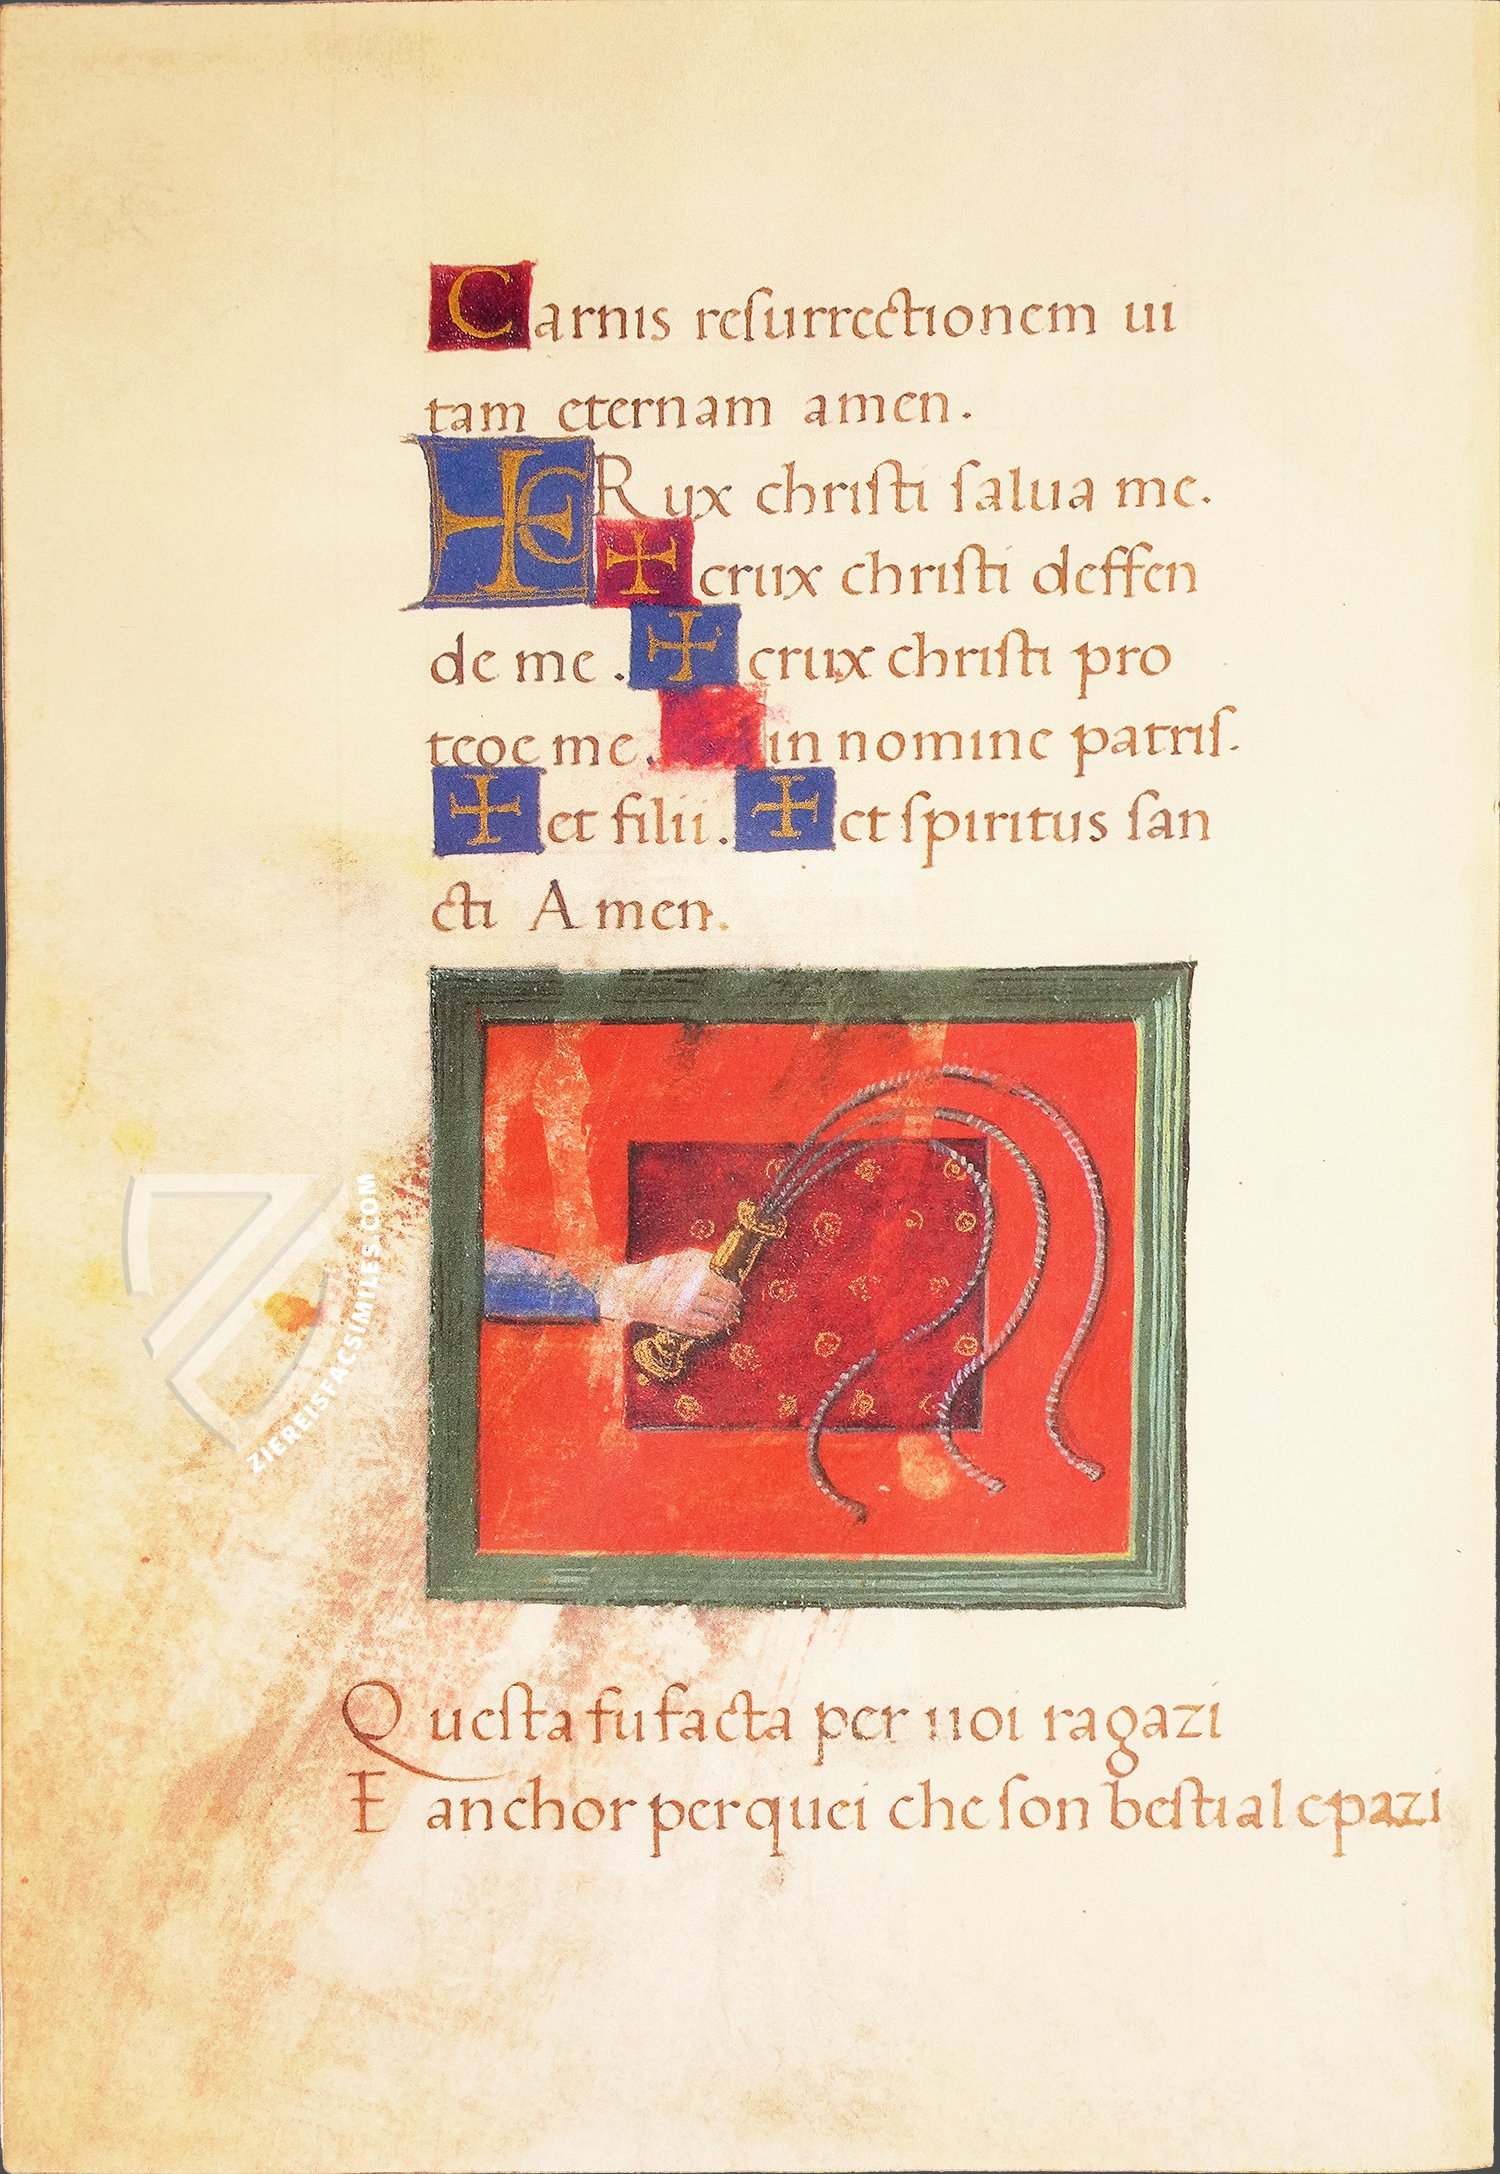 Carnis reſurrectionem ui
tam eternam amen.
✠ CRux chriſti ſalua me.
✠ crux chriſti deffen
de me. ✠ crux chriſti pro
tege me. in nomine patriſ.
✠ et filii. ✠ et ſpiritus ſan
cti Amen.
Queſta fu facta per uoi ragazi
E anchor per quei che ſon beſtial e pazi
ZIEREISFACSIMILES.COM